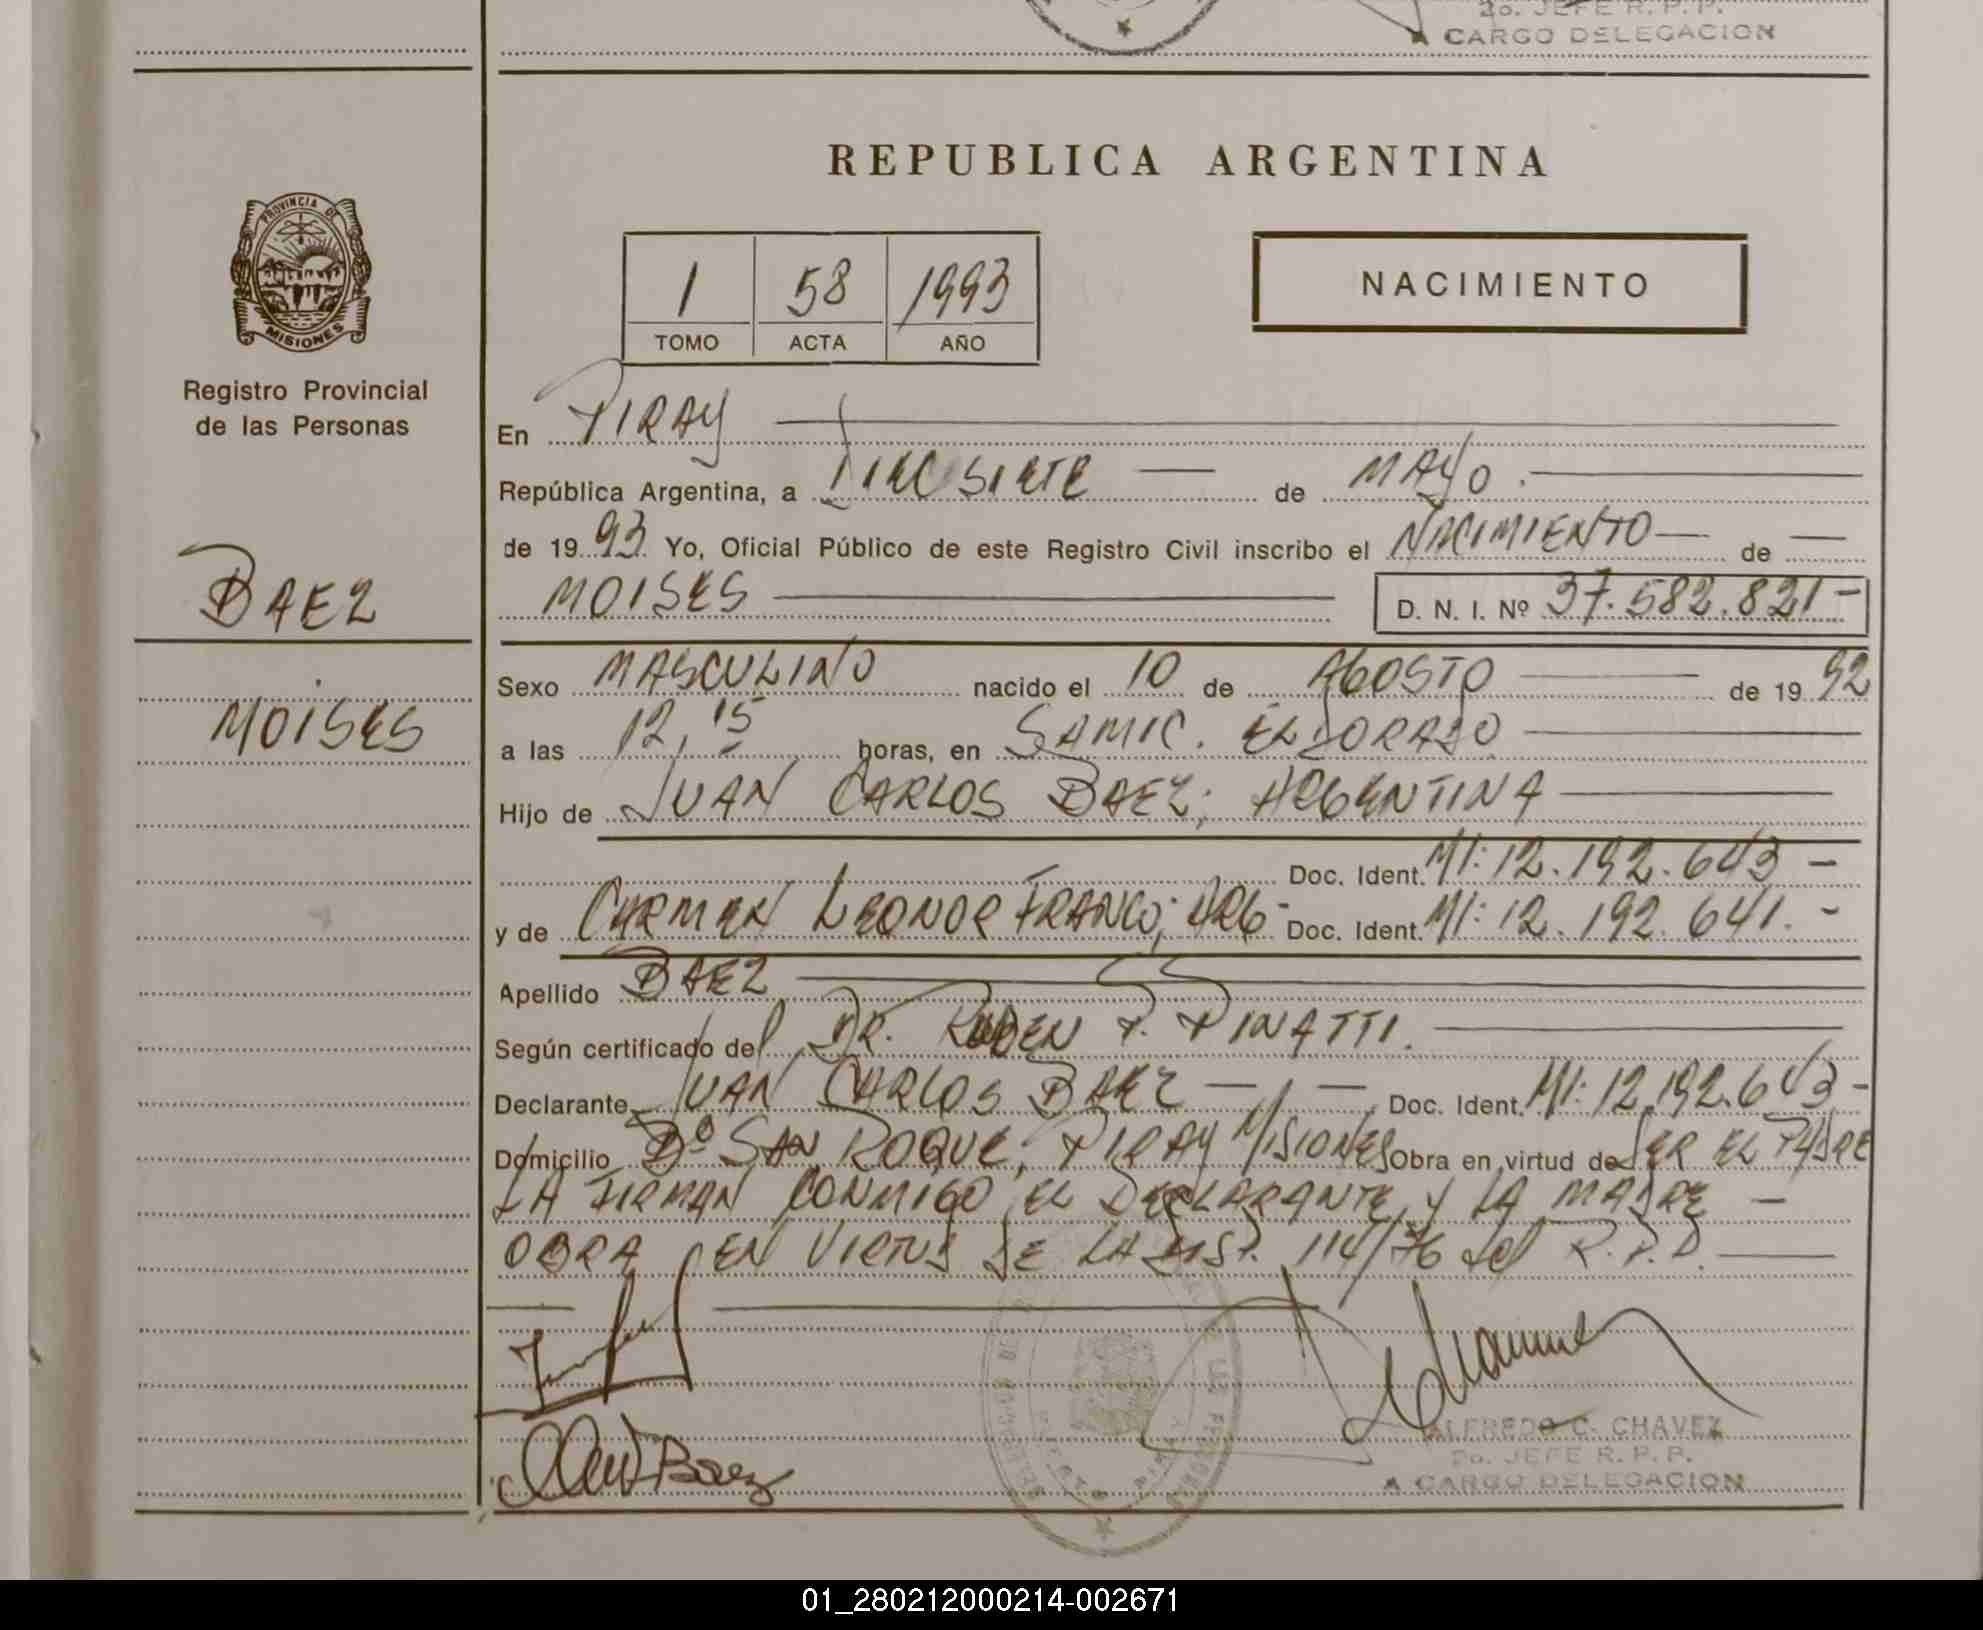 2o. JEFE R. P. P.
A CARGO DELEGACION
REPUBLICA ARGENTINA
PROVINCIA DE
MISIONES
Registro Provincial
de las Personas
1 58 1993
TOMO ACTA AÑO
NACIMIENTO
En PIRAY
República Argentina, a DIECISIETE de MAYO.
de 19 93 Yo, Oficial Público de este Registro Civil inscribo el NACIMIENTO de
BAEZ
MOISES
MOISES D. N. I. Nº 37.582.821-
Sexo MASCULINO nacido el 10 de AGOSTO de 19 92
a las 12,15 horas, en SAMIC. ELDORADO
Hijo de JUAN CARLOS BAEZ; ARGENTINA
Doc. Ident. MI: 12.192.643 -
y de CARMEN LEONOR FRANCO; ARG- Doc. Ident. MI: 12.192.641.-
Apellido BAEZ
Según certificado del DR. RUBEN P. PINATTI.
Declarante JUAN CARLOS BAEZ Doc. Ident. MI: 12.192.643-
Domicilio Bº SAN ROQUE, PIRAY MISIONES Obra en virtud de SER EL PADRE
LA FIRMAN CONMIGO EL DECLARANTE Y LA MADRE -
OBRA EN VIRTUD DE LA DISP. 114/76 del R.P.P.
Baez
ALFREDO C. CHAVEZ
2o. JEFE R. P. P.
A CARGO DELEGACION
01_280212000214-002671